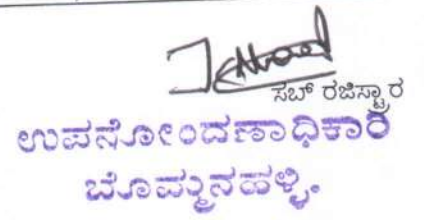 ಸಬ್ ರಜಿಸ್ಟ್ರಾರ
ಉಪನೋಂದಣಾಧಿಕಾರಿ
ಬೊಮ್ಮನಹಳ್ಳಿ.